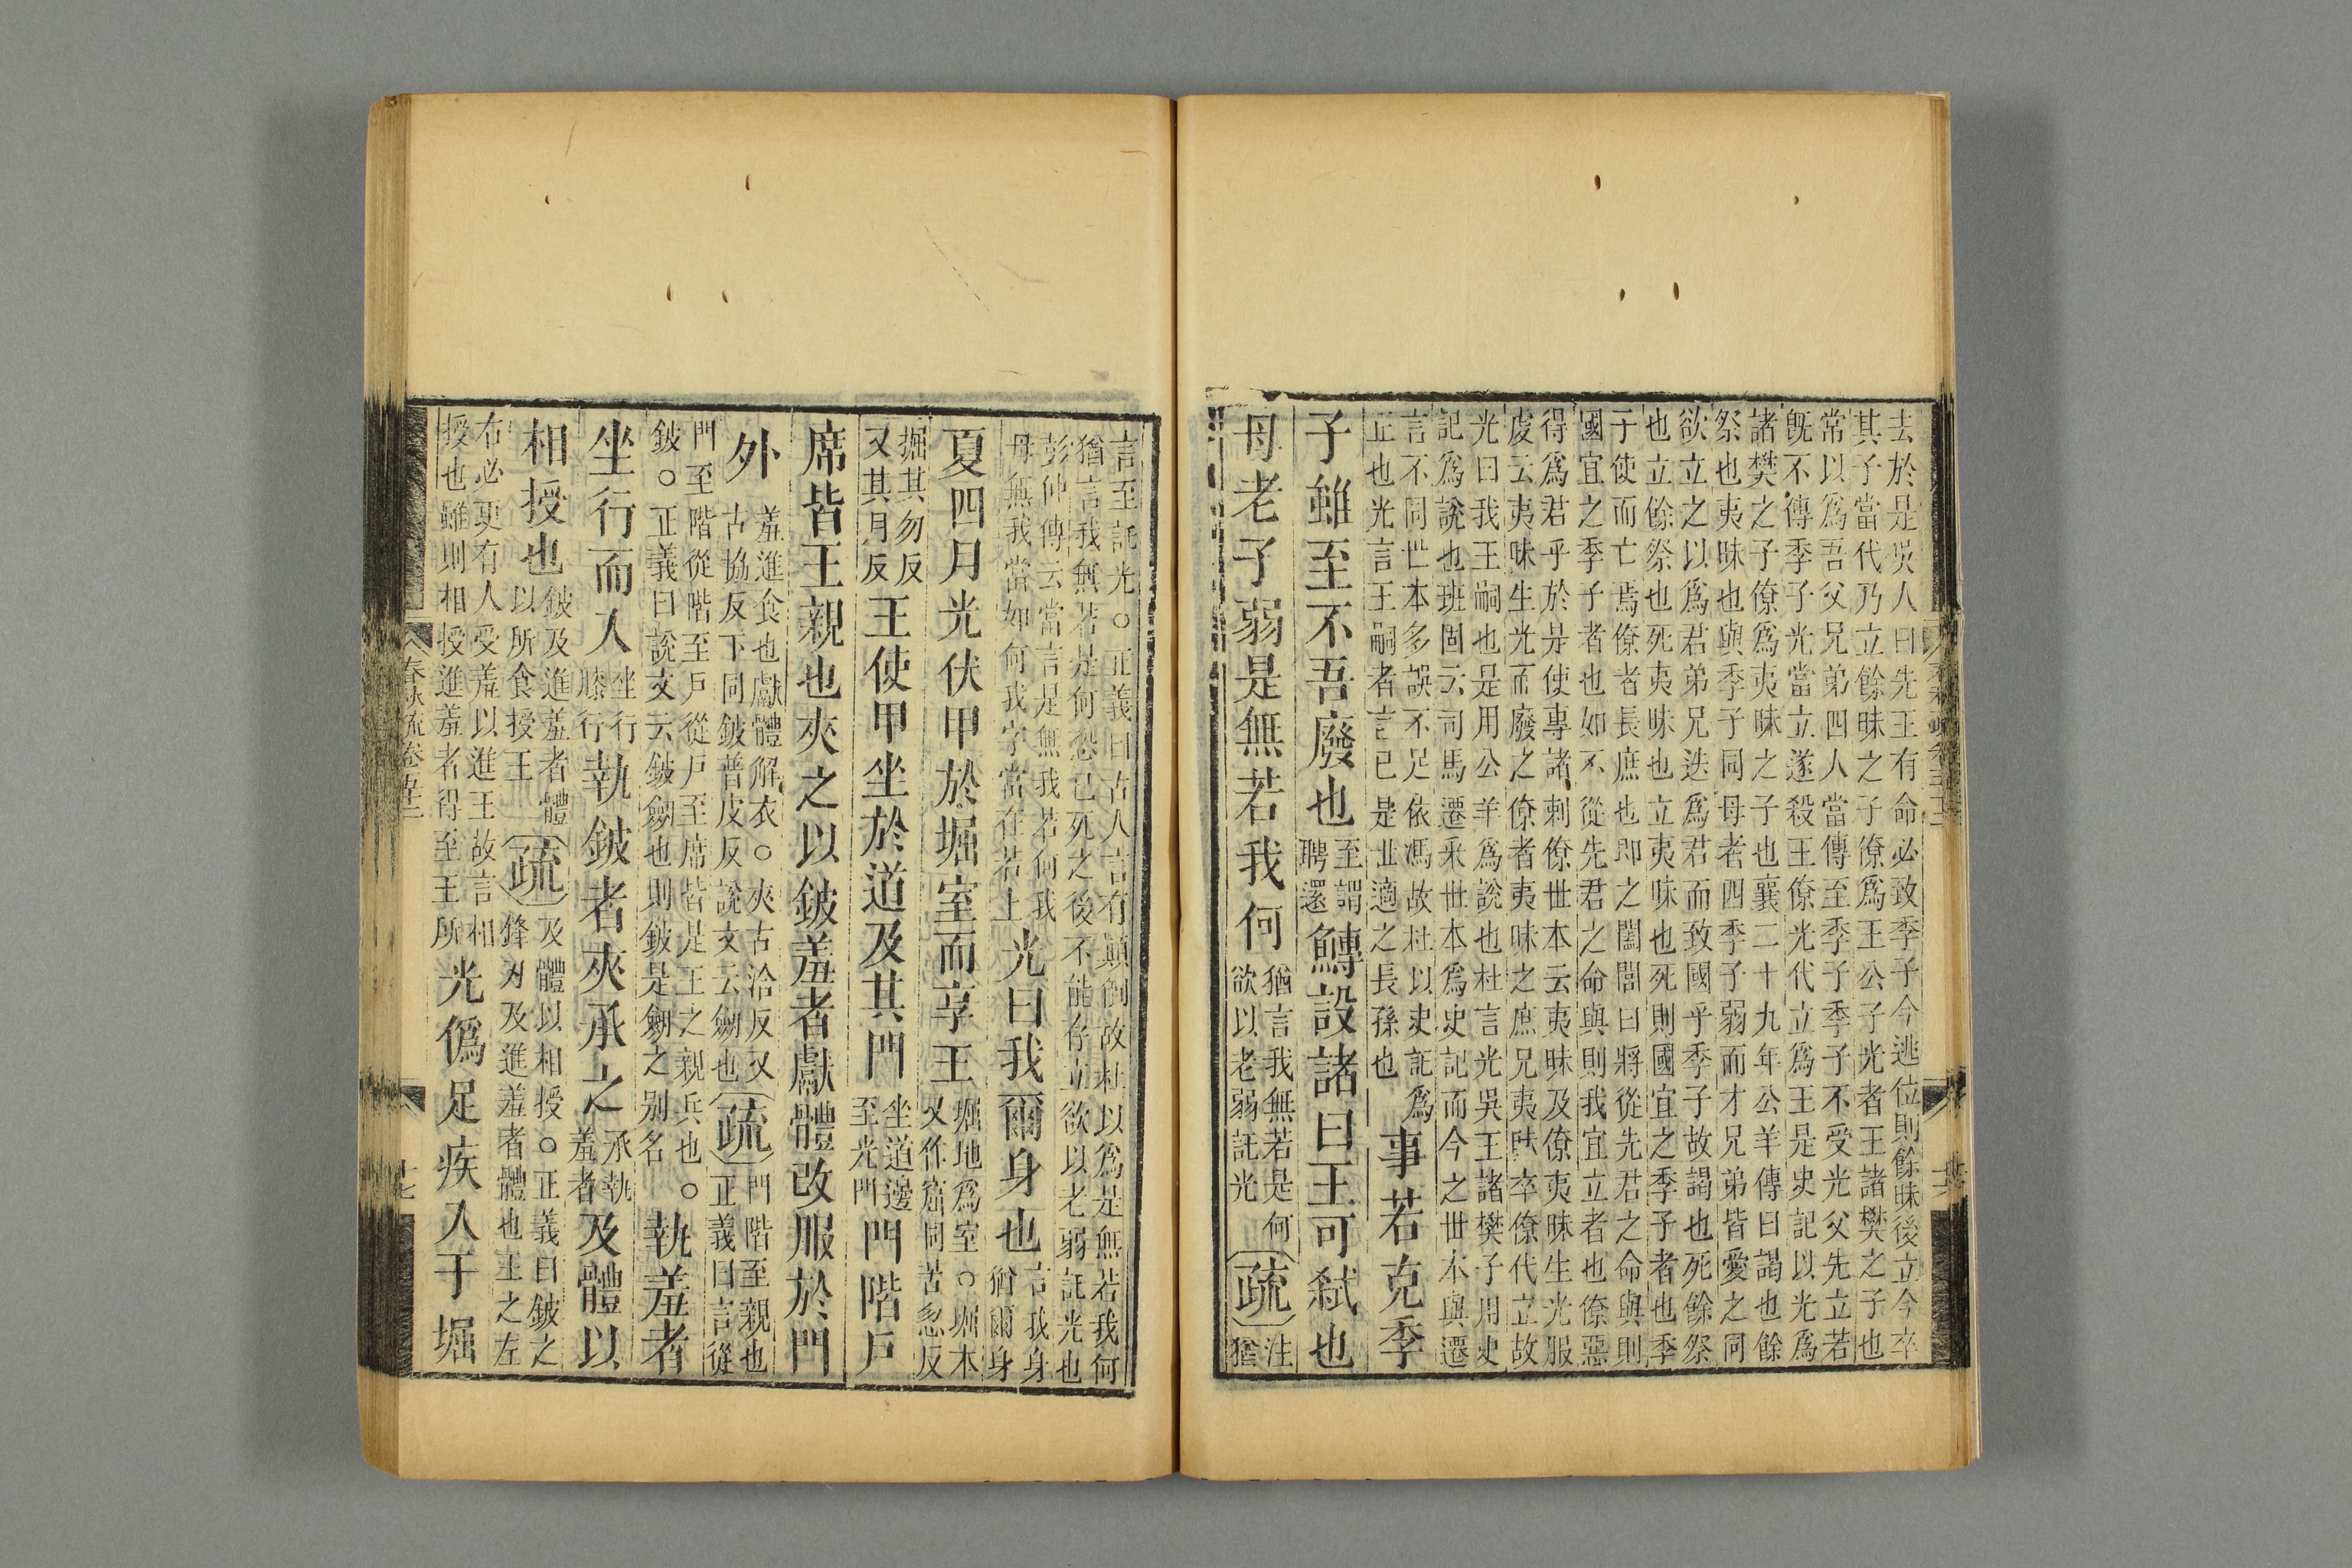 去於是吳人曰先王有命必致季子今逃位則餘昧後立今卒
其子當代乃立餘昧之子僚爲王公子光者王諸樊之子也
常以爲吾父兄弟四人當傳至季子季子不受光父先立若
旣不傳季子光當立遂殺王僚光代立爲王是史記以光爲
諸樊之子僚爲夷昧之子也襄二十九年公羊傳曰謁也餘
祭也夷昧也與季子同母者四季子弱而才兄弟皆愛之同
欲立之以爲君弟兄迭爲君而致國乎季子故謁也死餘祭
也立餘祭也死夷昧也立夷昧也死則國宜之季子者也季
子使而亡焉僚者長庶也卽之闔閭曰將從先君之命與則
國宜之季子者也如不從先君之命與則我宜立者也僚惡
得爲君乎於是使專諸刺僚世本云夷昧及僚夷昧生光服
虔云夷昧生光而廢之僚者夷昧之庶兄夷昧卒僚代立故
光曰我王嗣也是用公羊爲說也杜言光吳王諸樊子用史
記爲說也班固云司馬遷采世本爲史記而今之世本與遷
言不同世本多誤不足依馮故杜以史記爲
正也光言王嗣者言已是世適之長孫也
事若克季
子雖至不吾廢也
至謂
聘還
鱄設諸曰王可弑也
母老子弱是無若我何
猶言我無若是何
欲以老弱託光
疏
注
猶
言至託光○正義曰古人言有顛倒故杜以爲是無若我何
猶言我無若是何恐已死之後不能存立欲以老弱託光也
彭仲傳云當言是無我若何我
母無我當如何我字當在若上
光曰我爾身也
言我身
猶爾身
夏四月光伏甲於堀室而享王
堀地爲室○堀本
又作窟同苦忽反
掘其勿反
又其月反
王使甲坐於道及其門
坐道邊
至光門
門階戶
席皆王親也夾之以鈹羞者獻體改服於門
外
羞進食也獻體解衣○夾古洽反又
古協反下同鈹普皮反說文云劒也
疏
門階至親也
正義曰言從
門至階從階至戶從戶至席皆是王之親兵也○
鈹○正義曰說文云鈹劒也則鈹是劒之別名
執羞者
坐行而入
坐行
膝行
執鈹者夾承之
承執
羞者
及體以
相授也
鈹及進羞者體
以所食授王
疏
及體以相授○正義曰鈹之
鋒刃及進羞者體也王之左
右必更有人受羞以進王故言相
授也雖則相授進羞者得至王所
光僞足疾入于堀
春秋疏卷五十二